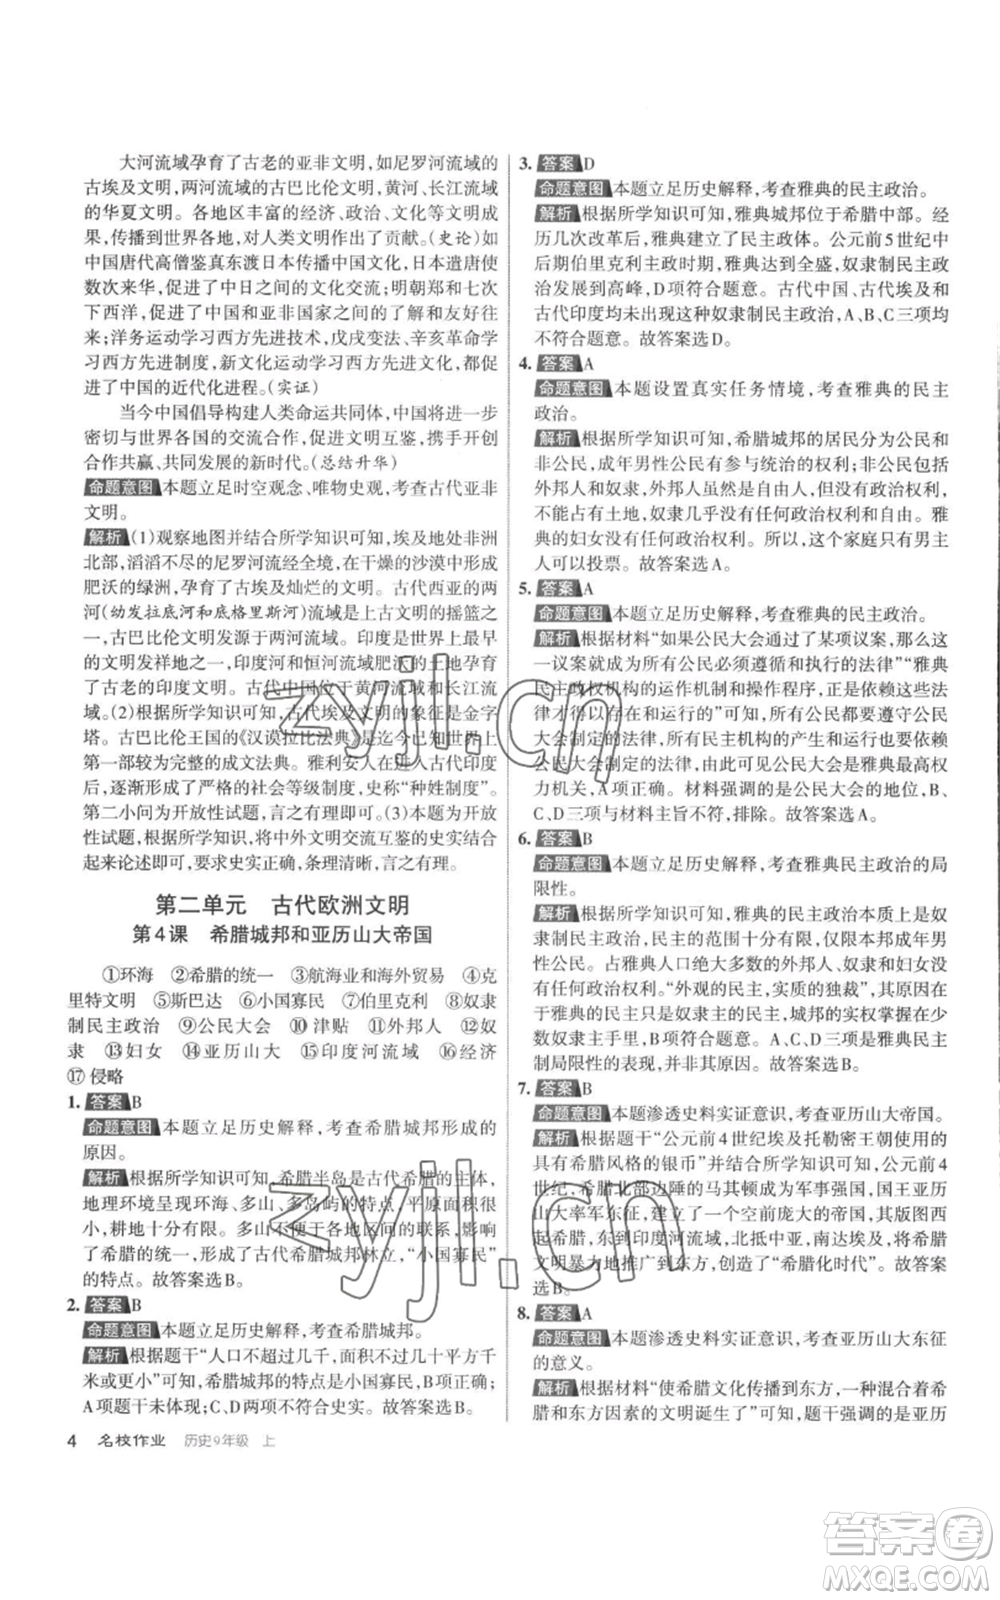 大河流域孕育了古老的亚非文明,如尼罗河流域的
古埃及文明,两河流域的古巴比伦文明,黄河、长江流域的
的华夏文明。各地区丰富的经济、政治、文化等文明成
果,传播到世界各地,对人类文明作出了贡献。(史论)如
中国唐代高僧鉴真东渡日本传播中国文化,日本遣唐使
数次来华,促进了中日之间的文化交流;明朝郑和七次
下西洋,促进了中国和亚非国家之间的了解和友好往
来;洋务运动学习西方先进技术,戊戌变法、辛亥革命学
习西方先进制度,新文化运动学习西方先进文化,都促
进了中国的近代化进程。(实证)
当今中国倡导构建人类命运共同体,中国将进一步
密切与世界各国的交流合作,促进文明互鉴,携手开创
合作共赢、共同发展的新时代。(总结升华)
命题意图 本题立足时空观念、唯物史观,考查古代亚非
文明。
解析 (1)观察地图并结合所学知识可知,埃及地处非洲
北部,滔滔不尽的尼罗河流经全境,在干燥的沙漠中形成
肥沃的绿洲,孕育了古埃及灿烂的文明。古代西亚的两
河(幼发拉底河和底格里斯河)流域是上古文明的摇篮之
一,古巴比伦文明发源于两河流域。印度是世界上最早
的文明发祥地之一,印度河和恒河流域肥沃的土地孕育
了古老的印度文明。古代中国位于黄河、长江流
域。(2)根据所学知识可知,古代埃及文明的象征是金字
塔。古巴比伦王国的《汉谟拉比法典》是迄今已知世界上
第一部较为完整的成文法典。雅利安人在入主古代印度
后,逐渐形成了严格的社会等级制度,史称“种姓制度”。
第二小问为开放性试题,言之有理即可。(3)本题为开放
性试题,根据所学知识,将中外文明交流互鉴的史实结合
起来论述即可,要求史实正确,条理清晰,言之有理。
第二单元 古代欧洲文明
第4课 希腊城邦和亚历山大帝国
①环海 ②希腊的统一 ③航海业和海外贸易 ④克
里特文明 ⑤斯巴达 ⑥小国寡民 ⑦伯里克利 ⑧奴隶
制民主政治 ⑨公民大会 ⑩津贴 ⑪外邦人 ⑫奴
隶 ⑬妇女 ⑭亚历山大 ⑮印度河流域 ⑯经济
⑰侵略
1. 答案 B
命题意图 本题立足历史解释,考查希腊城邦形成的
原因。
解析 根据所学知识可知,希腊半岛是古代希腊的主体,
地理环境呈现环海、多山、多岛的特点,平原面积狭
小,耕地十分有限。多山不便于各地区间的联系,影响
了希腊的统一,形成了古代希腊城邦林立、“小国寡民”
的特点。故答案选B。
2. 答案 B
命题意图 本题立足历史解释,考查希腊城邦。
解析 根据题干“人口不超过几千,面积不超过几十平方千
米或更小”可知,希腊城邦的特点是小国寡民,B项正确;
A项题干未体现;C、D两项不符合史实。故答案选B。
4 名校作业 历史9年级 上
3. 答案 D
命题意图 本题立足历史解释,考查雅典的民主政治。
解析 根据所学知识可知,雅典城邦位于希腊中部。经
历几次改革后,雅典建立了民主政体。公元前5世纪中
后期伯里克利主政时期,雅典达到全盛,奴隶制民主政
治发展到高峰,D项符合题意。古代中国、古代埃及和
古代印度均未出现这种奴隶制民主政治,A、B、C三项均
不符合题意。故答案选D。
4. 答案 A
命题意图 本题设置真实任务情境,考查雅典的民主
政治。
解析 根据所学知识可知,希腊城邦的居民分为公民和
非公民,成年男性公民有参与统治的权利;非公民包括
外邦人和奴隶,外邦人虽然是自由人,但没有政治权利,
不能占有土地,奴隶几乎没有任何政治权利和自由。雅
典的妇女没有任何政治权利,所以,这个家庭只有男主
人可以投票。故答案选A。
5. 答案 A
命题意图 本题立足历史解释,考查雅典的民主政治。
解析 根据材料“如果公民大会通过了某项议案,那么这
一议案就成为所有公民必须遵循和执行的法律”“雅典
民主政权机构的运作机制和操作程序,正是因为这些法
律才得以存在和运行的”可知,所有公民都要遵守公民
大会制定的法律,所有民主机构的产生和运行要依赖
公民大会制定的法律,由此可见,公民大会是最高权
力机关,A项符合题意。材料强调的是公民大会,
B、C、D三项与材料主旨不符,排除。故答案选A。
6. 答案 B
命题意图 本题立足历史解释,考查雅典民主政治的局
限性。
解析 根据所学知识可知,雅典的民主政治本质上是奴
隶制民主政治,民主的范围十分有限,仅限本邦成年男
性公民。占雅典人口绝大多数的外邦人、奴隶和妇女没
有政治权利。“外观的民主,实质的独裁”,其原因在
于雅典的民主只是奴隶主的民主,城邦的实权掌握在少
数奴隶主手里,B项符合题意。A、C、D三项是雅典民主
制局限性的表现,并非原因。故答案选B。
7. 答案 B
命题意图 本题渗透史料实证意识,考查亚历山大帝国。
解析 根据题干“公元前4世纪埃及托勒密王朝使用的
具有希腊风格的银币”并结合所学知识可知,公元前4
世纪,希腊北部边陲的马其顿成为军事强国,国王亚历
山大率军东征,建立了一个空前庞大的帝国,将希腊
文明暴力地推广到东方,创造了“希腊化时代”。故答案
选B。
8. 答案 A
命题意图 本题渗透史料实证意识,考查亚历山大东征
的意义。
解析 根据材料“使希腊文化传播到东方,一种融合希腊
和东方因素的文明诞生了”可知,题干强调的是亚历
zyjl.cn
zyjl.cn
答案圈
MXQE.COM